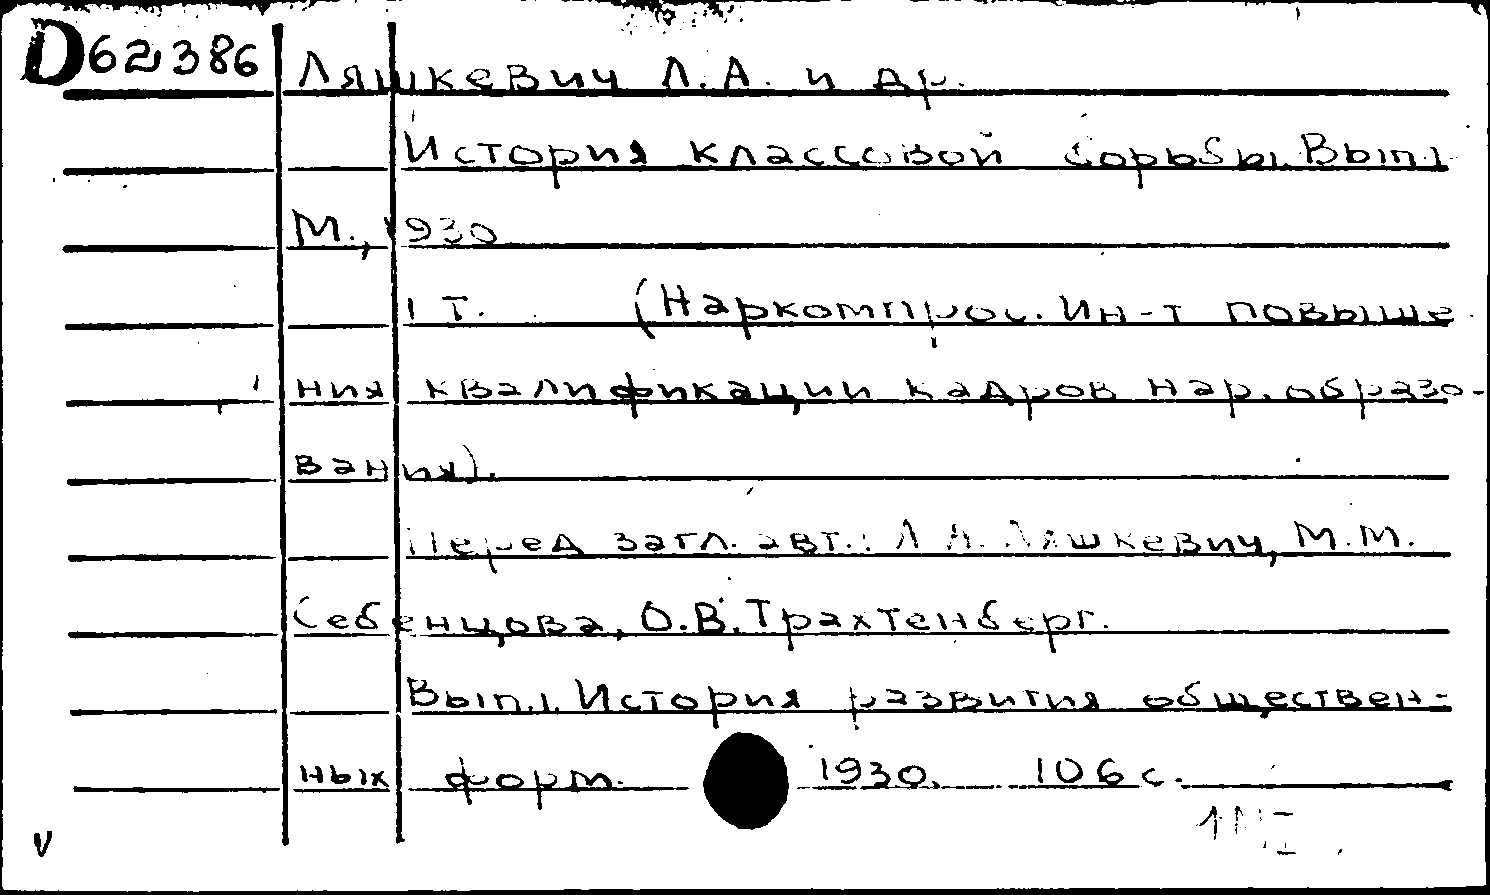 D62386 Ляшкевич Л.А. и др.
История классовой борьбы. Вып.1
М., 1930
1 т. (Наркомпрос. Ин-т повыше
ния квалификации кадров нар. образо-
вания).
Перед загл. авт.: Л.А. Ляшкевич, М.М.
Себенцова, О.В. Трахтенберг.
Вып.1. История развития обществен-
ных форм. 1930. 106 с.
V